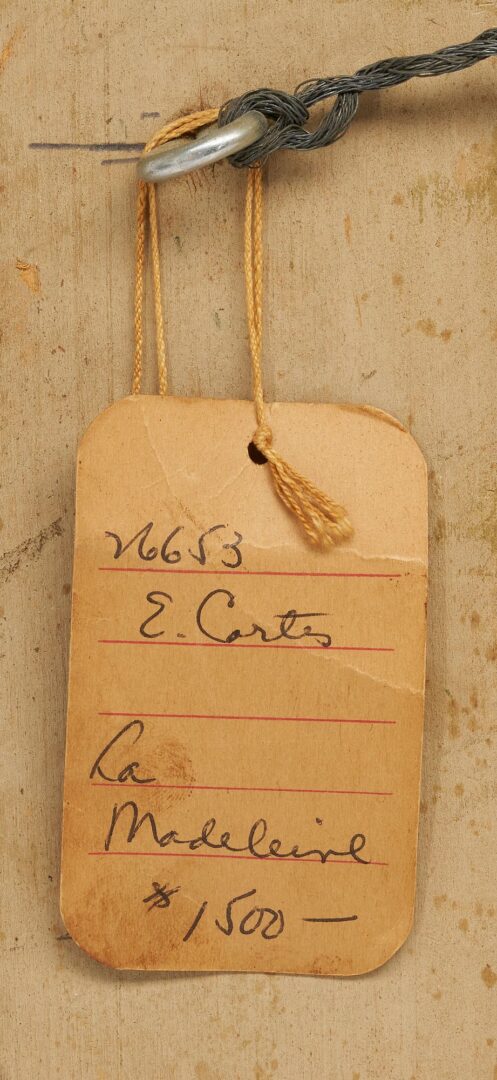 26653
E. Cortes
La
Madeleine
$1500—